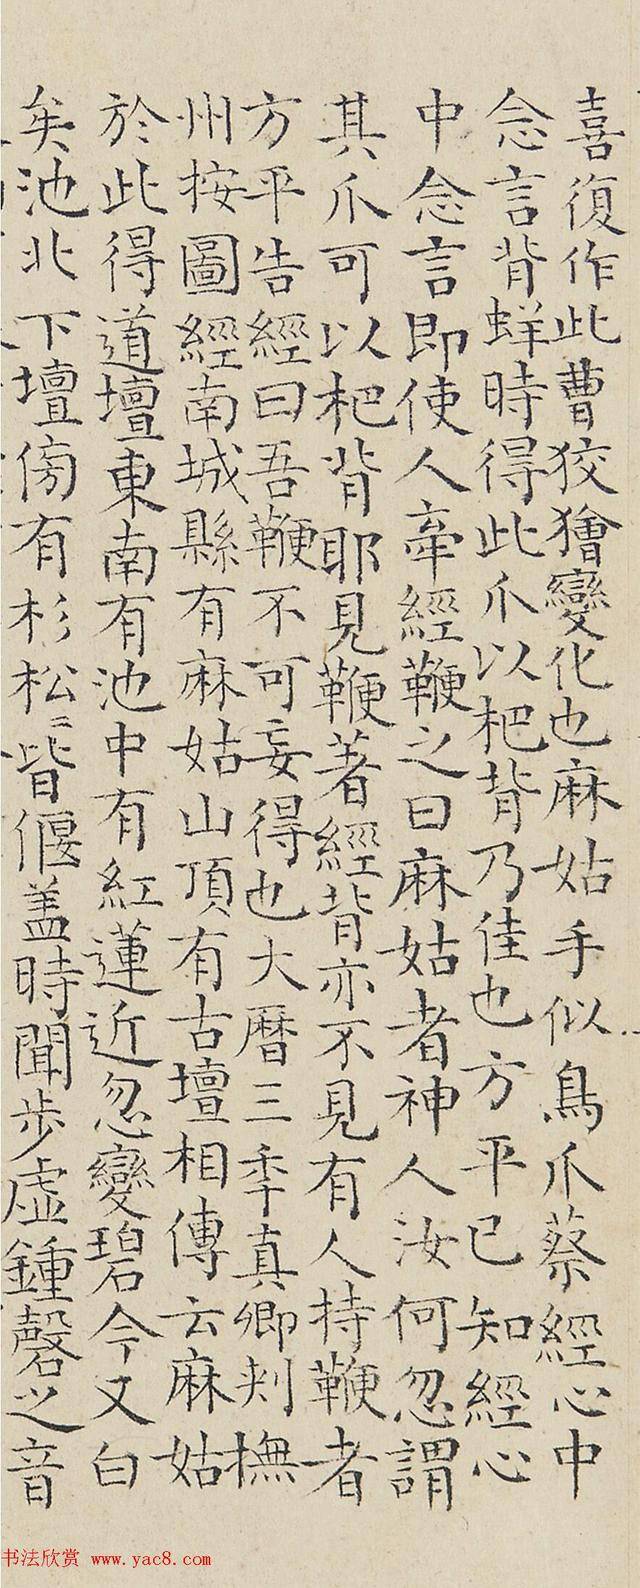 喜復作此曹狡獪變化也麻姑手似鳥爪蔡經心中
念言背蛘時得此爪以杷背乃佳也方平已知經心
中念言即使人牽經鞭之曰麻姑者神人汝何忽謂
其爪可以杷背耶見鞭著經背亦不見有人持鞭者
方平告經曰吾鞭不可妄得也大曆三季真卿刾撫
州按圖經南城縣有麻姑山頂有古壇相傳云麻姑
於此得道壇東南有池中有紅蓮近忽變碧今又白
矣池北下壇傍有杉松〻皆偃盖時聞步虛鍾磬之音
书法欣赏 www.yac8.com